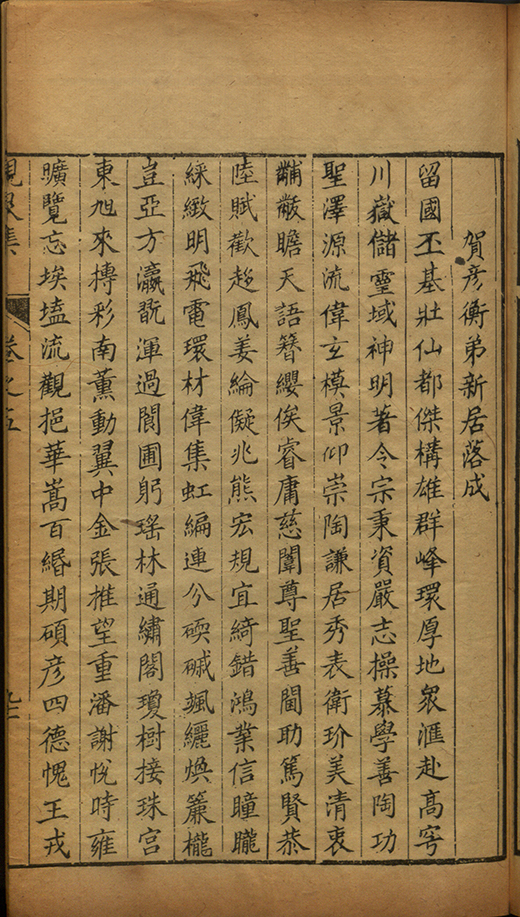 賀彥衡弟新居落成
留國丕基壯仙都傑構雄群峰環厚地眾滙赴高穹
川嶽儲靈域神明著令宗秉資嚴志操慕學善陶功
聖澤源流偉玄模景仰崇陶謙居秀表衛玠美清衷
黼黻瞻天語簪纓俟睿庸慈闈尊聖善閫助篤賢恭
陸賦歡趍鳳姜綸儗兆熊宏規宜綺錯鴻業信瞳矓
綵緻明飛電環材偉集虹編連兮碝磩颯纚煥簾櫳
豈亞方瀛翫渾過閬圃躬瑤林通繡閣瓊樹接珠宮
東旭來摶彩南薰動翼中金張推望重潘謝悅時雍
曠覽忘埃壒流觀挹華嵩百緡期碩彥四德愧王戎
集 卷之五